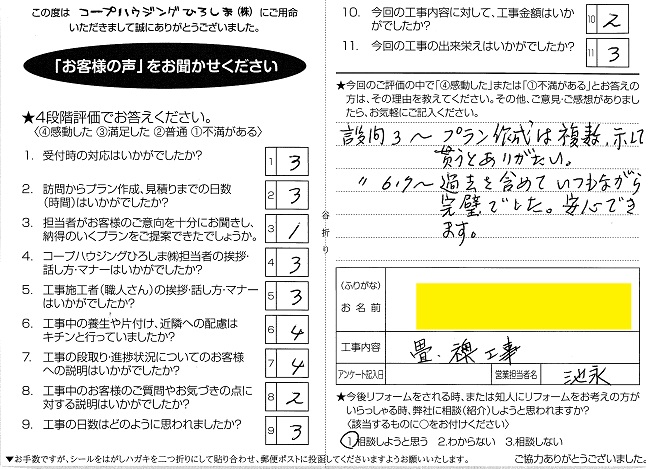 この度は コープハウジングひろしま(株) にご用命
いただきまして誠にありがとうございました。
「お客様の声」をお聞かせください
★4段階評価でお答えください。
〈④感動した ③満足した ②普通 ①不満がある〉
1. 受付時の対応はいかがでしたか?
1 3
2. 訪問からプラン作成、見積りまでの日数
(時間)はいかがでしたか?
2 3
3. 担当者がお客様のご意向を十分にお聞きし、
納得のいくプランをご提案できたでしょうか。
3 1
4. コープハウジングひろしま㈱担当者の挨拶・
話し方・マナーはいかがでしたか?
4 3
5. 工事施工者(職人さん)の挨拶・話し方・マナー
はいかがでしたか?
5 3
6. 工事中の養生や片付け、近隣への配慮は
キチンと行っていましたか?
6 4
7. 工事の段取り・進捗状況についてのお客様
への説明はいかがでしたか?
7 4
8. 工事中のお客様のご質問やお気づきの点に
対する説明はいかがでしたか?
8 2
9. 工事の日数はどのように思われましたか?
9 3
▼お手数ですが、シールをはがしハガキを二つ折りにして貼り合わせ、郵便ポストに投函してくださいますようお願いいたします。
谷折り
10. 今回の工事内容に対して、工事金額はいか
がでしたか?
10 2
11. 今回の工事の出来栄えはいかがでしたか?
11 3
★今回のご評価の中で「④感動した」または「①不満がある」とお答え
の方は、その理由を教えてください。その他、ご意見・ご感想がありました
ら、お気軽にご記入ください。
設問3〜プラン作成は複数、示して
貰うとありがたい。
〃 6,7〜過去を含めていつもながら
完璧でした。安心でき
ます。
(ふりがな)
お名前
工事内容
畳・襖工事
アンケート記入日
営業担当者名
池永
★今後リフォームをされる時、または知人にリフォームをお考えの方が
いらっしゃる時、弊社に相談(紹介)しようと思われますか?
〈該当するものに○をお付けください〉
1.相談しようと思う 2.わからない 3.相談しない
ご協力ありがとうございました。